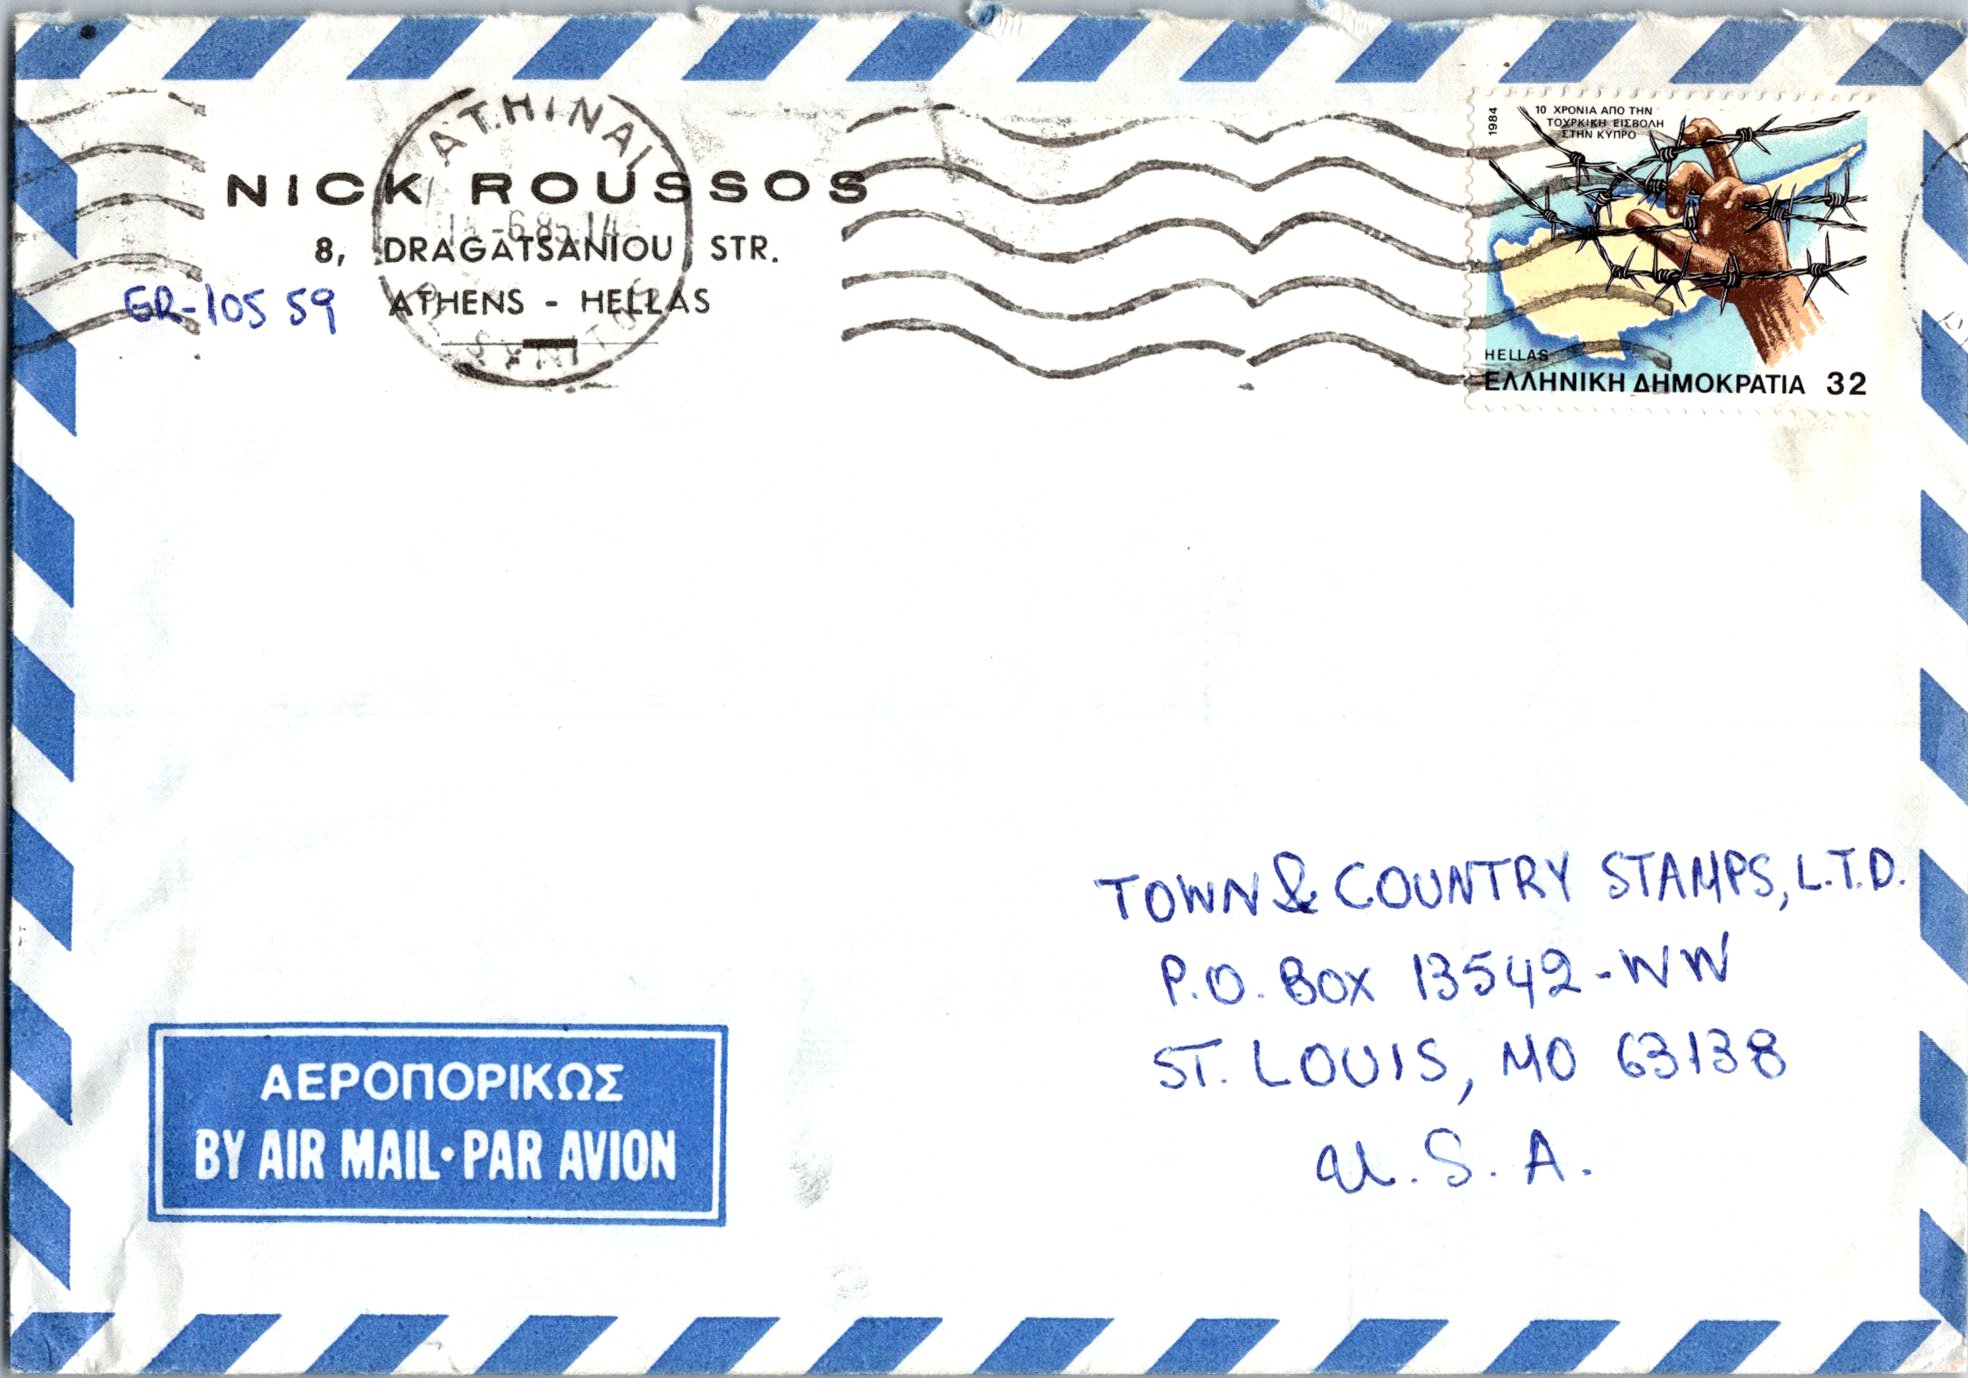 ATHINAI
NICK ROUSSOS
8, DRAGATSANIOU STR.
GR-105 59 ATHENS - HELLAS
1984
10 ΧΡΟΝΙΑ ΑΠΟ ΤΗΝ
ΤΟΥΡΚΙΚΗ ΕΙΣΒΟΛΗ
ΣΤΗΝ ΚΥΠΡΟ
HELLAS
ΕΛΛΗΝΙΚΗ ΔΗΜΟΚΡΑΤΙΑ 32
TOWN & COUNTRY STAMPS, L.T.D.
P.O. BOX 13542-WW
ST. LOUIS, MO 63138
U.S.A.
ΑΕΡΟΠΟΡΙΚΩΣ
BY AIR MAIL • PAR AVION